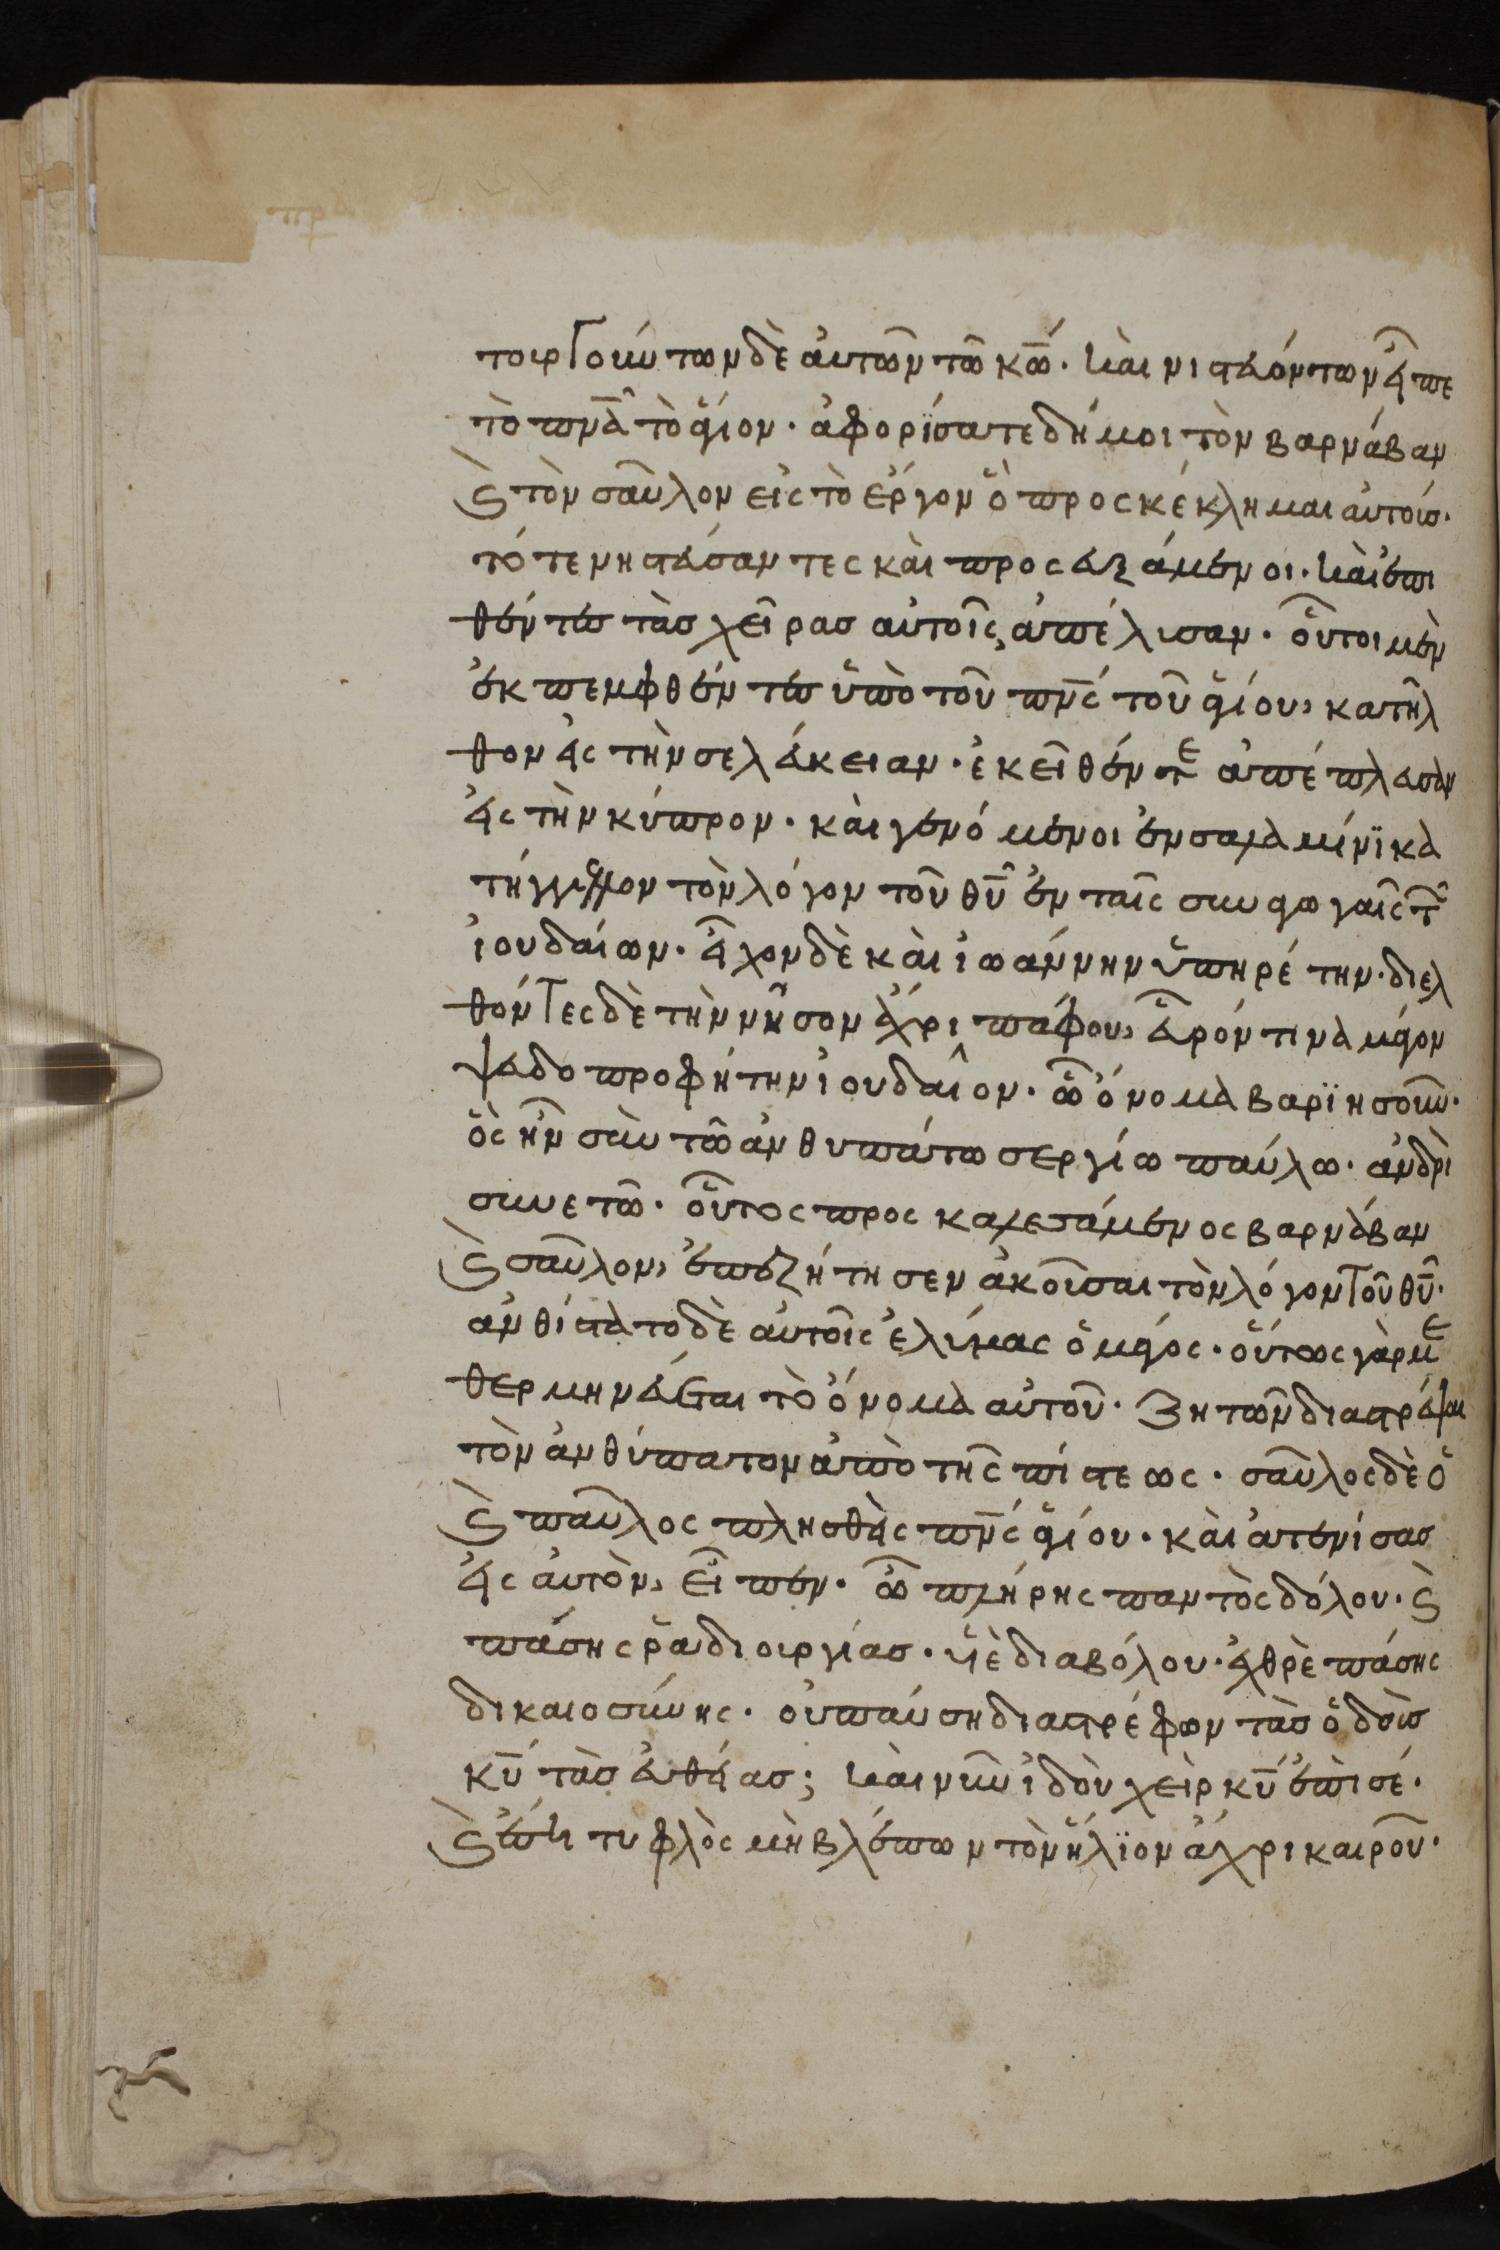 τουργούντων δὲ αὐτῶν τῶ κω̅. καὶ νιστευόντων εἶπε
τὸ πνα̅ τὸ ἅγιον. ἀφορίσατε δή μοι τὸν βαρνάβαν
ϗ τὸν σαῦλον εἰς τὸ ἔργον ὃ προσκέκλημαι αὐτούς.
τότε νηστεύσαντες καὶ προσευξάμενοι. καὶ ἐπι
θέντες τὰς χεῖρας αὐτοῖς, ἀπέλυσαν. οὗτοι μὲν
ἐκπεμφθέντες ὑπὸ τοῦ πνς̅ τοῦ ἁγίου, κατῆλ
θον εἰς τὴν σελεύκειαν. ἐκεῖθέν τε ἀπέπλευσαν
εἰς τὴν κύπρον. καὶ γενόμενοι ἐν σαλαμίνϊ κα
τήγγελλον τὸν λόγον τοῦ θυ̅ ἐν ταῖς συναγωγαῖς τῶν
ἰουδαίων. εἶχον δὲ καὶ ἰωάννην ὑπηρέτην. διελ
θόντες δὲ τὴν νῆσον ἄχρι πάφου, εὗρόν τινα μάγον
ψευδοπροφήτην ἰουδαῖον. ὧ ὄνομα βαρϊησοῦν.
ὃς ἦν σὺν τῶ ἀνθυπάτω σεργίω παύλω. ἀνδρὶ
συνετῶ. οὗτος προσκαλεσάμενος βαρνάβαν
ϗ σαῦλον, ἐπεζήτησεν ἀκοῦσαι τὸν λόγον τοῦ θυ̅.
ἀνθίστατο δὲ αὐτοῖς ἐλύμας ὁ μάγος. οὕτως γὰρ με
θερμηνεύεται τὸ ὄνομα αὐτοῦ. ζητῶν διαστρέψαι
τὸν ἀνθύπατον ἀπὸ τῆς πίστεως. σαῦλος δὲ ὁ
ϗ παῦλος πλησθεὶς πνς̅ ἁγίου. καὶ ἀτενίσας
εἰς αὐτὸν, εἶπεν. ὦ πλήρης παντὸς δόλου. ϗ
πάσης ῥαδιουργίας. υἱὲ διαβόλου. ἐχθρὲ πάσης
δικαιοσύνης. οὐ παύση διαστρέφων τὰς ὁδοὺς
κυ̅ τὰς εὐθείας; καὶ νῦν ἰδοὺ χεὶρ κυ̅ ἐπὶ σέ.
ϗ ἔση τυφλὸς μὴ βλέπων τὸν ἥλϊον ἄχρι καιροῦ.